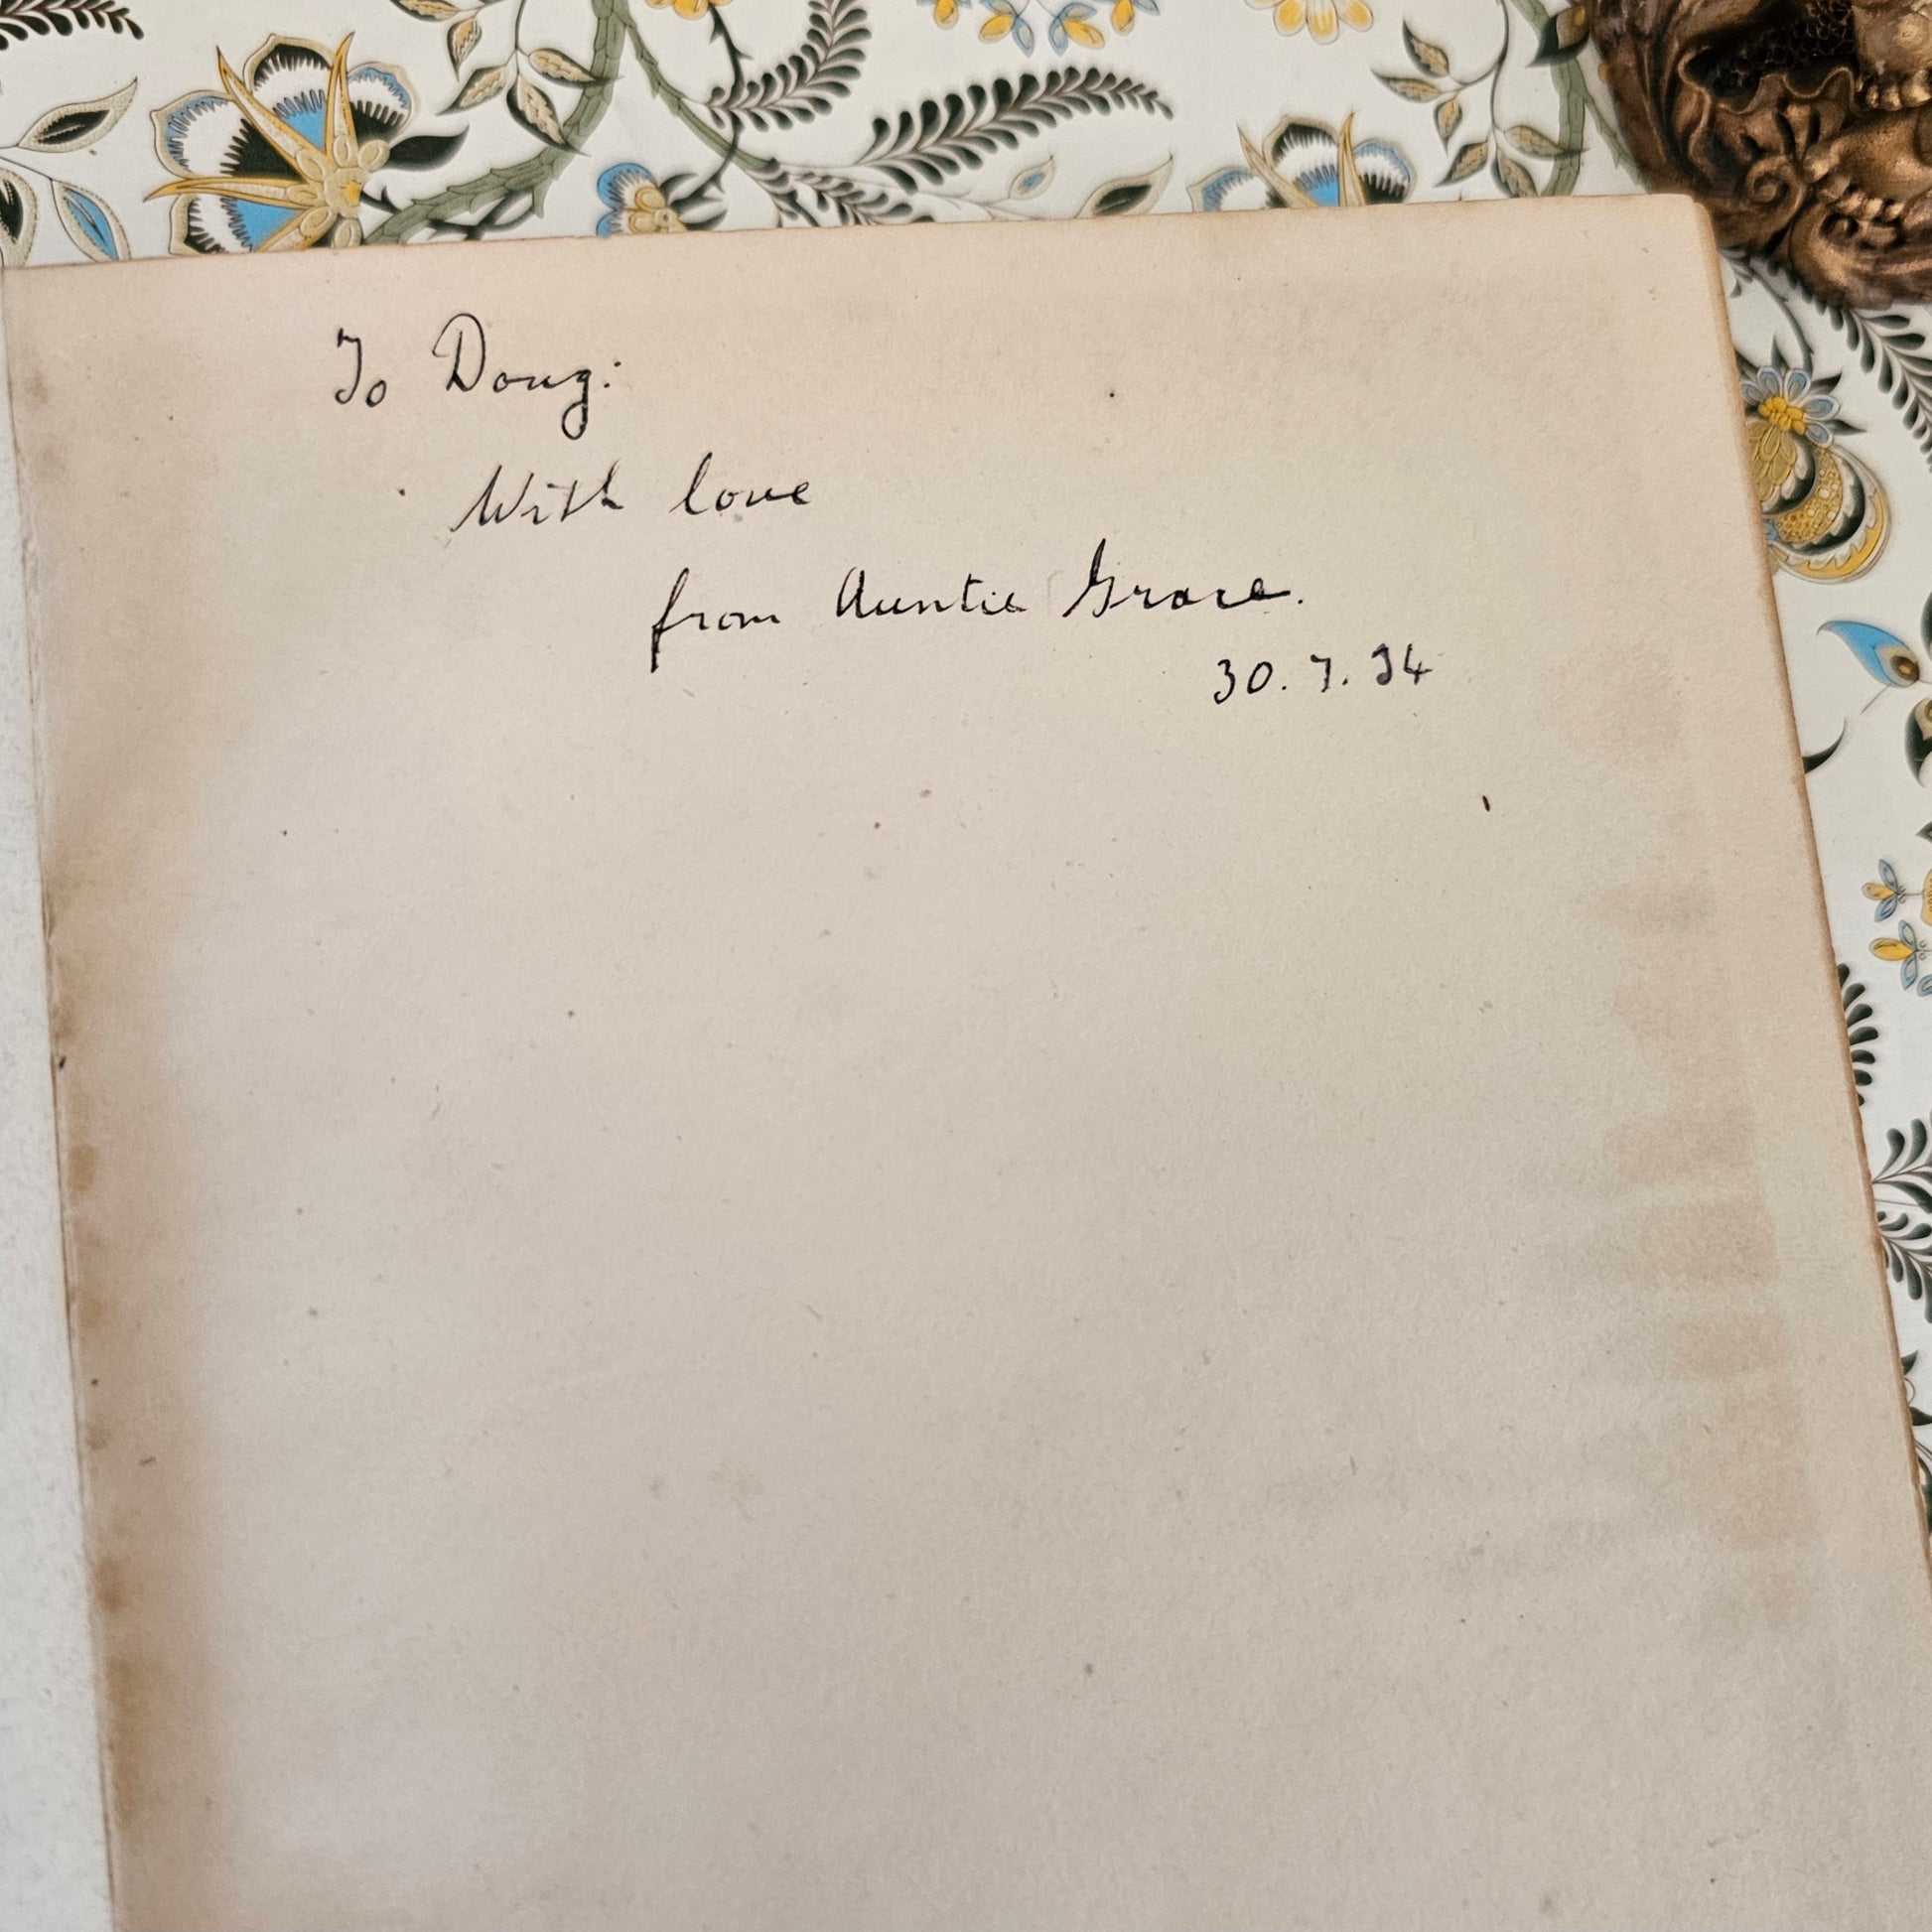 To Doug:
With love
from Auntie Grace.
30. 7. 34